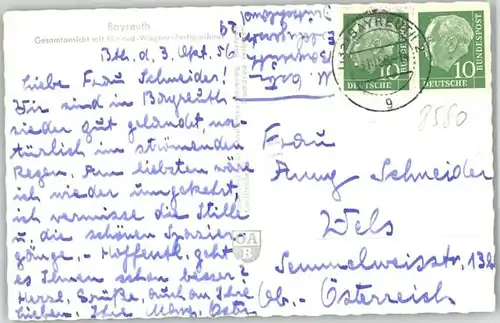 Bayreuth
Gesamtansicht mit Richard-Wagner-Festspielhaus
Bth. d. 3. Okt. 56
Liebe Frau Schneider!
Wir sind in Bayreuth
wieder gut gelandet, na-
türlich im strömenden
Regen. Am liebsten wäre
ich wieder umgekehrt,
ich vermisse die Stille
u. die schönen Spazier-
gänge. - Hoffentl. geht
es Ihnen schon besser?
Herzl. Grüße, auch an Ihre
Lieben. Ihre
Bayreuth
29
BAYREUTH 2
g
10
DEUTSCHE
BUNDESPOST
10
DEUTSCHE
BUNDESPOST
8580
Frau
Anny Schneider
Wels
Semmelweisstr.
Ob.-Österreich